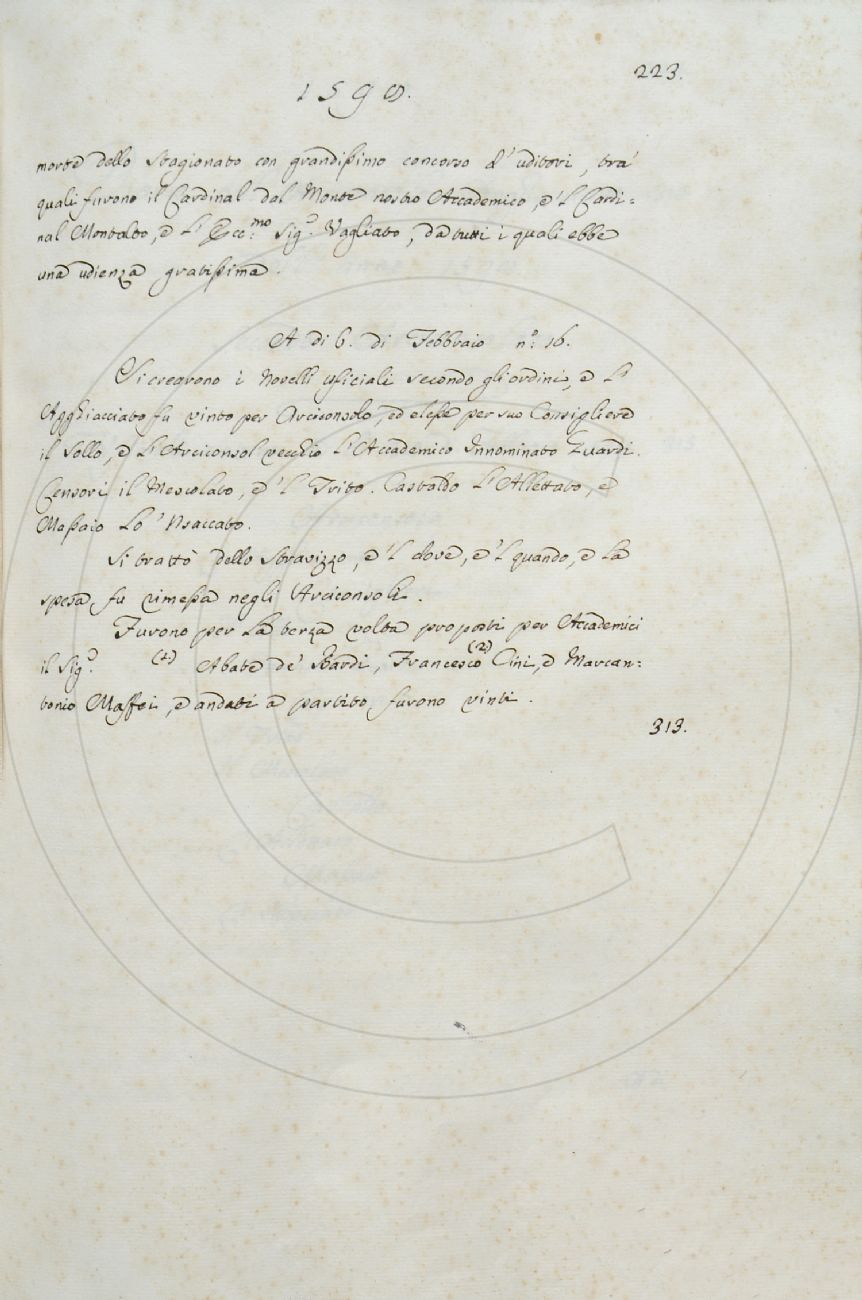 223.
1590.
morte dello Stagionato con grandissimo concorso d'uditori, tra'
quali furono il Cardinal dal Monte nostro Accademico, e 'l Cardi=
nal Montalto, e l'Ecc.mo Sig.º Vagliato, da tutti i quali ebbe
una udienza gratissima.
A di 6. di Febbraio n.º 16.
Si crearono i Novelli uficiali secondo gli ordini, e l'
Agghiacciato fu vinto per Arciconsolo, ed elesse per suo Consigliere
il Sollo, e l'Arciconsol vecchio l'Accademico Innominato Zuardi.
Censori il Mescolato, e 'l Trito. Castaldo l'Allettato, e
Massaio lo 'Nsaccato.
Si trattò dello stravizzo, e 'l dove, e 'l quando, e la
spesa fu rimessa negli Arciconsoli.
Furono per la terza volta proposti per Accademici
il Sig.º (1) Abate de' Bardi, Francesco (2) Cini, e Marcan=
tonio Maffei, e andati a partito, furono vinti.
313.